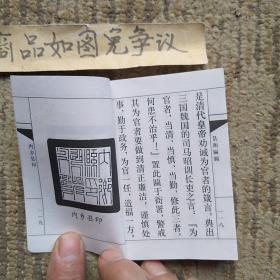 商品如图免争议
是清代皇帝劝诫为官者的箴言，典出
三国魏国的司马昭训长吏之言：“为
官者，当清，当慎，当勤，修此三者，
何患不治乎！”置此匾于衙署，警戒
其为官者要做到清正廉洁，谨慎处
事，勤于政务，为官一任，造福一方。
一八
内乡丑印
内乡丑印
一九